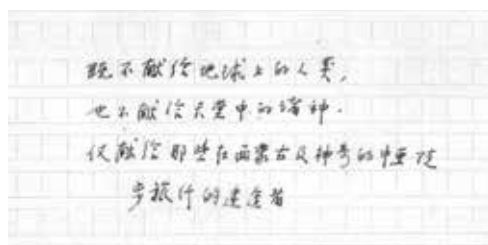 既不献给地球上的人类,
也不献给天堂中的诸神.
仅献给那些在西蒙古及神奇的中亚徒
步旅行的迷途者